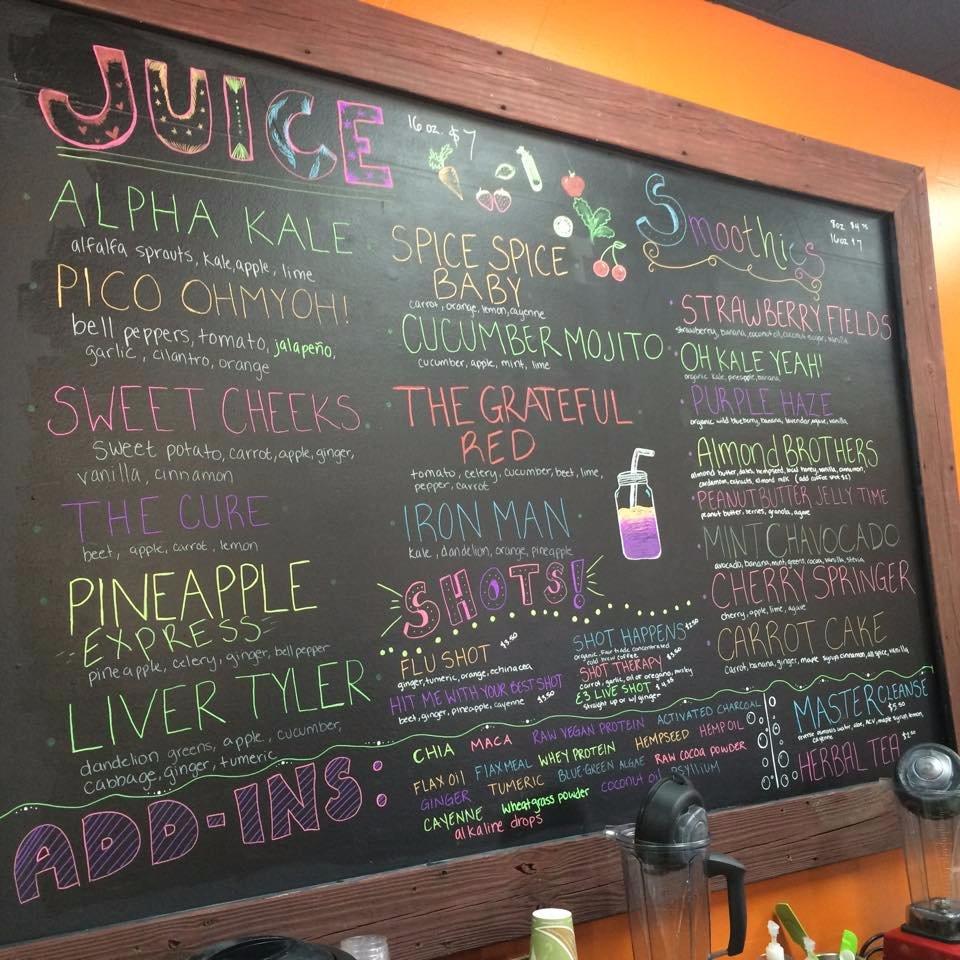 JUICE
16 oz. $7
ALPHA KALE
alfalfa sprouts, kale, apple, lime
PICO OHMYOH!
bell peppers, tomato, jalapeño,
garlic, cilantro, orange
SWEET CHEEKS
sweet potato, carrot, apple, ginger,
vanilla, cinnamon
THE CURE
beet, apple, carrot, lemon
PINEAPPLE
EXPRESS
pineapple, celery, ginger, bell pepper
LIVER TYLER
dandelion greens, apple, cucumber,
cabbage, ginger, tumeric
SPICE SPICE
BABY
carrot, orange, lemon, cayenne
CUCUMBER MOJITO
cucumber, apple, mint, lime
THE GRATEFUL
RED
tomato, celery, cucumber, beet, lime,
pepper, carrot
IRON MAN
kale, dandelion, orange, pineapple
SHOTS!
FLU SHOT $3.50
ginger, tumeric, orange, echinacea
HIT ME WITH YOUR BEST SHOT
beet, ginger, pineapple, cayenne $3.50
SHOT HAPPENS
organic, fair trade concentrated
cold brew coffee
SHOT THERAPY
carrot, garlic, oil of oregano, parsley
E3 LIVE SHOT
straight up or w/ ginger
Smoothies
8oz
16oz $7
STRAWBERRY FIELDS
strawberry, banana, coconut oil, coconut sugar, vanilla
OH KALE YEAH!
organic kale, pineapple, banana
PURPLE HAZE
organic wild blueberry, banana, lavender, agave, vanilla
Almond BROTHERS
almond butter, dates, hempseed, local honey, vanilla, cinnamon,
cardamom, extracts, almond milk (add coffee shot)
PEANUT BUTTER JELLY TIME
peanut butter, berries, granola, agave
MINT CHAVOCADO
avocado, banana, mint, greens, cocoa, vanilla, stevia
CHERRY SPRINGER
cherry, apple, lime, agave
CARROT CAKE
carrot, banana, ginger, maple syrup, cinnamon, all spice, vanilla
ADD-INS:
CHIA MACA RAW VEGAN PROTEIN ACTIVATED CHARCOAL
FLAX OIL FLAXMEAL WHEY PROTEIN HEMPSEED HEMP OIL
GINGER TUMERIC BLUE-GREEN ALGAE RAW COCOA POWDER
CAYENNE wheatgrass powder COCONUT OIL PSYLLIUM
alkaline drops
MASTER CLEANSE
$5.50
reverse osmosis water, aloe, ACV, maple syrup, lemon,
cayenne
HERBAL TEA